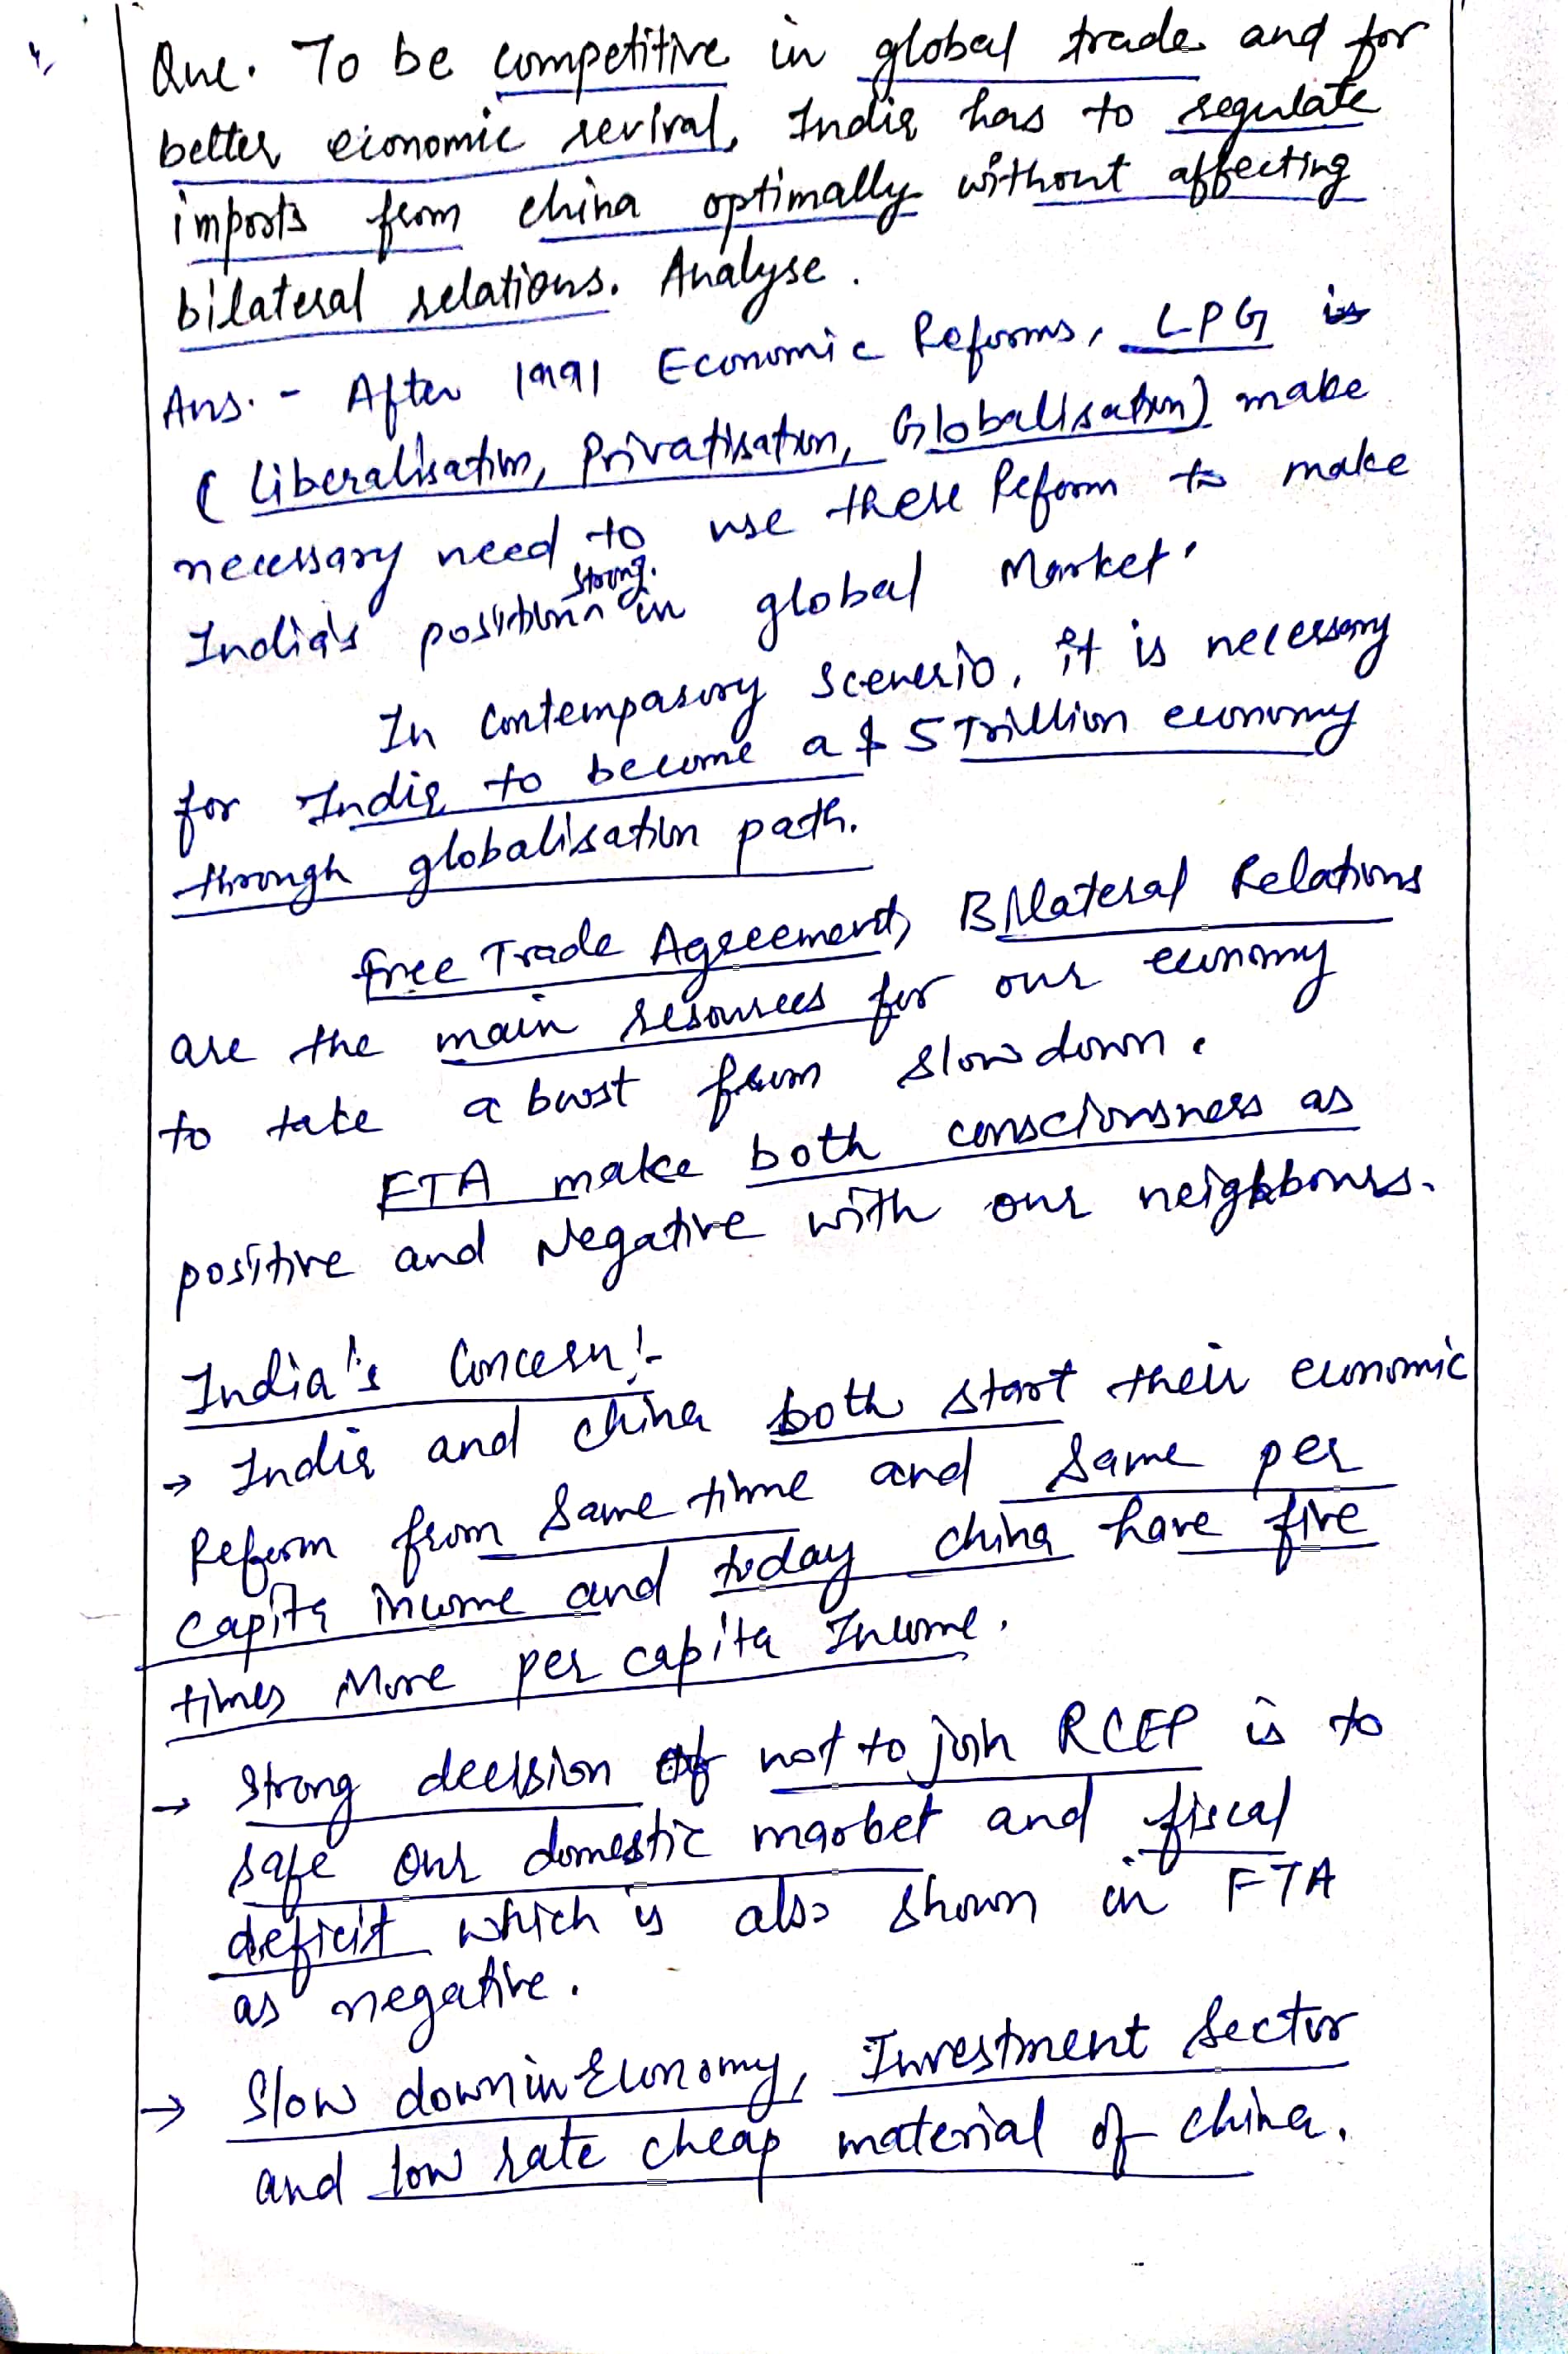 Que. To be competitive in global trade and for
better economic revival, India has to regulate
imports from china optimally without affecting
bilateral relations. Analyse.
Ans. - After 1991 Economic Reforms, LPG is
( Liberalisation, Privatisation, Globalisation) make
necessary need to use these Reform to make
India's position strong in global Market.
In Contemparory Scenerio, it is necessary
for India to become a $ 5 Trillion economy
through globalisation path.
free Trade Agreements, Bilateral Relations
are the main resources for our economy
to take a boost from slow down.
FTA make both consciousness as
positive and Negative with our neighbours.
India's Concern:-
→ India and china both start their economic
Reform from same time and same per
capita income and today china have five
times More per capita Income.
→ Strong decision of not to join RCEP is to
safe our domestic market and fiscal
deficit which is also shown in FTA
as negative.
→ Slow down in Economy, Investment Sector
and low rate cheap material of china.